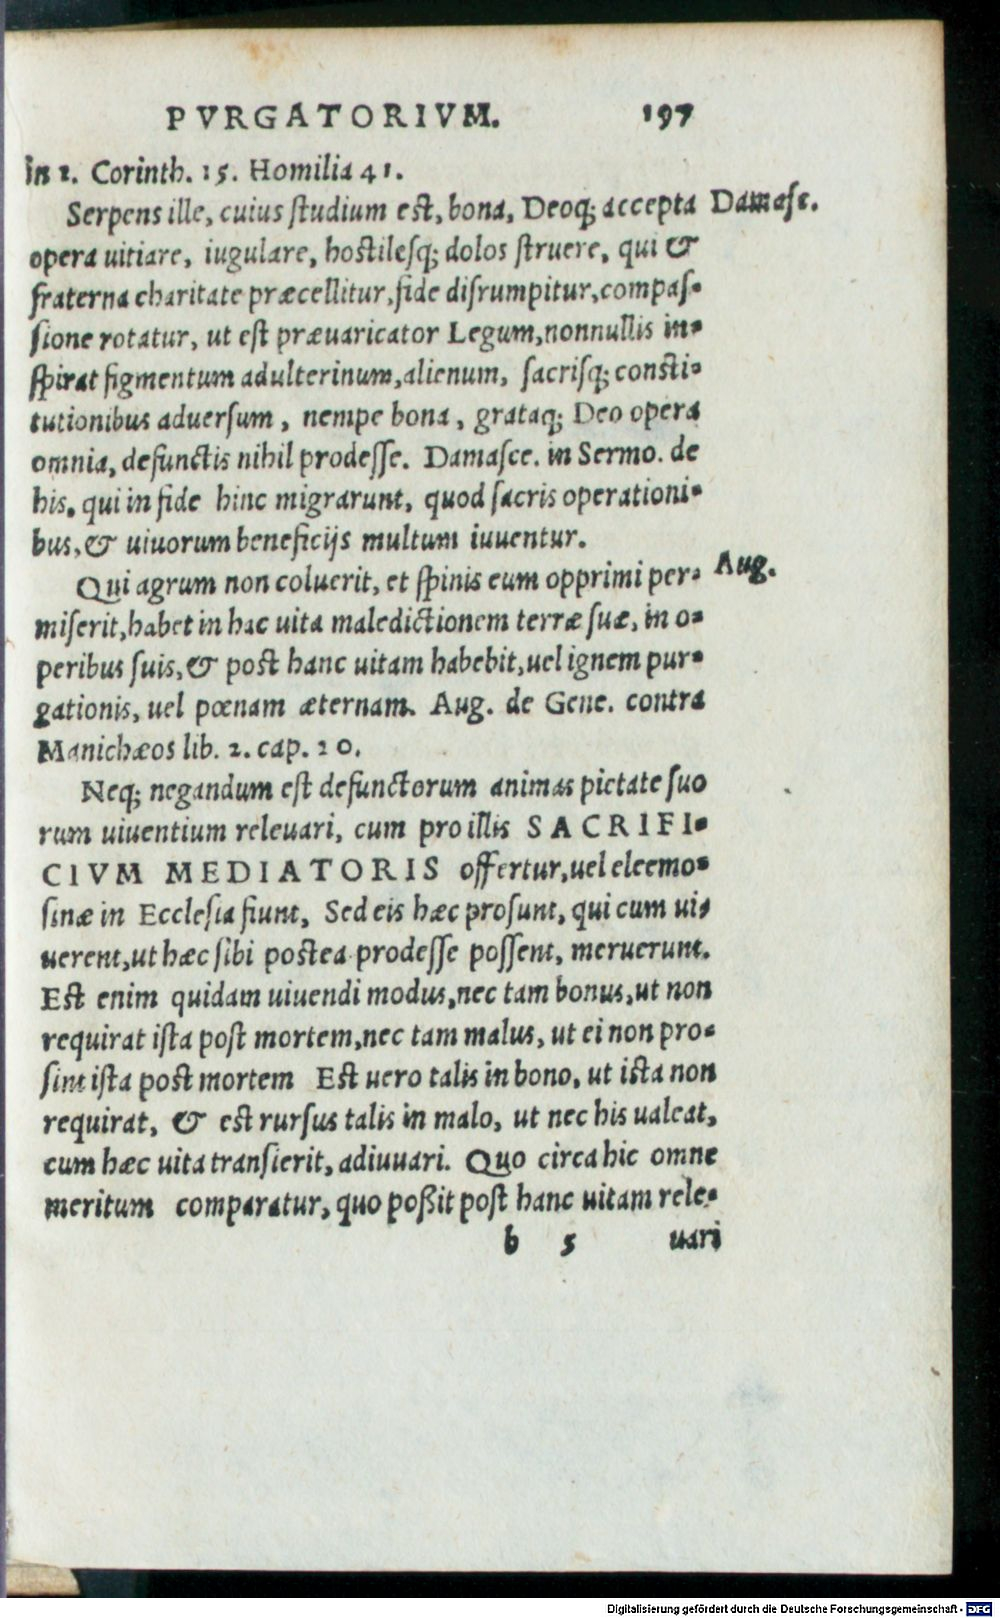 PVRGATORIVM. 197
In 1. Corinth. 15. Homilia 41.
Serpens ille, cuius studium est, bona, Deoq; accepta Damasc.
opera uitiare, iugulare, hostilesq; dolos struere, qui &
fraterna charitate præcellitur, fide disrumpitur, compas-
sione rotatur, ut est præuaricator Legum, nonnullis in-
spirat figmentum adulterinum, alienum, sacrisq; consti-
tutionibus aduersum, nempe bona, grataq; Deo opera
omnia, defunctis nihil prodesse. Damasce. in Sermo. de
his, qui in fide hinc migrarunt, quod sacris operationi-
bus, & uiuorum beneficijs multum iuuentur.
Qui agrum non coluerit, et spinis eum opprimi per- Aug.
miserit, habet in hac uita maledictionem terræ suæ, in o-
peribus suis, & post hanc uitam habebit, uel ignem pur-
gationis, uel pœnam æternam. Aug. de Gene. contra
Manichæos lib. 2. cap. 20.
Neq; negandum est defunctorum animas pietate suo
rum uiuentium releuari, cum pro illis SACRIFI-
CIVM MEDIATORIS offertur, uel eleemo-
sinæ in Ecclesia fiunt, Sed eis hæc prosunt, qui cum ui-
uerent, ut hæc sibi postea prodesse possent, meruerunt.
Est enim quidam uiuendi modus, nec tam bonus, ut non
requirat ista post mortem, nec tam malus, ut ei non pro-
sint ista post mortem Est uero talis in bono, ut ista non
requirat, & est rursus talis in malo, ut nec his ualeat,
cum hæc uita transierit, adiuuari. Quo circa hic omne
meritum comparatur, quo poßit post hanc uitam rele-
b 5 uari
Digitalisierung gefördert durch die Deutsche Forschungsgemeinschaft - DFG